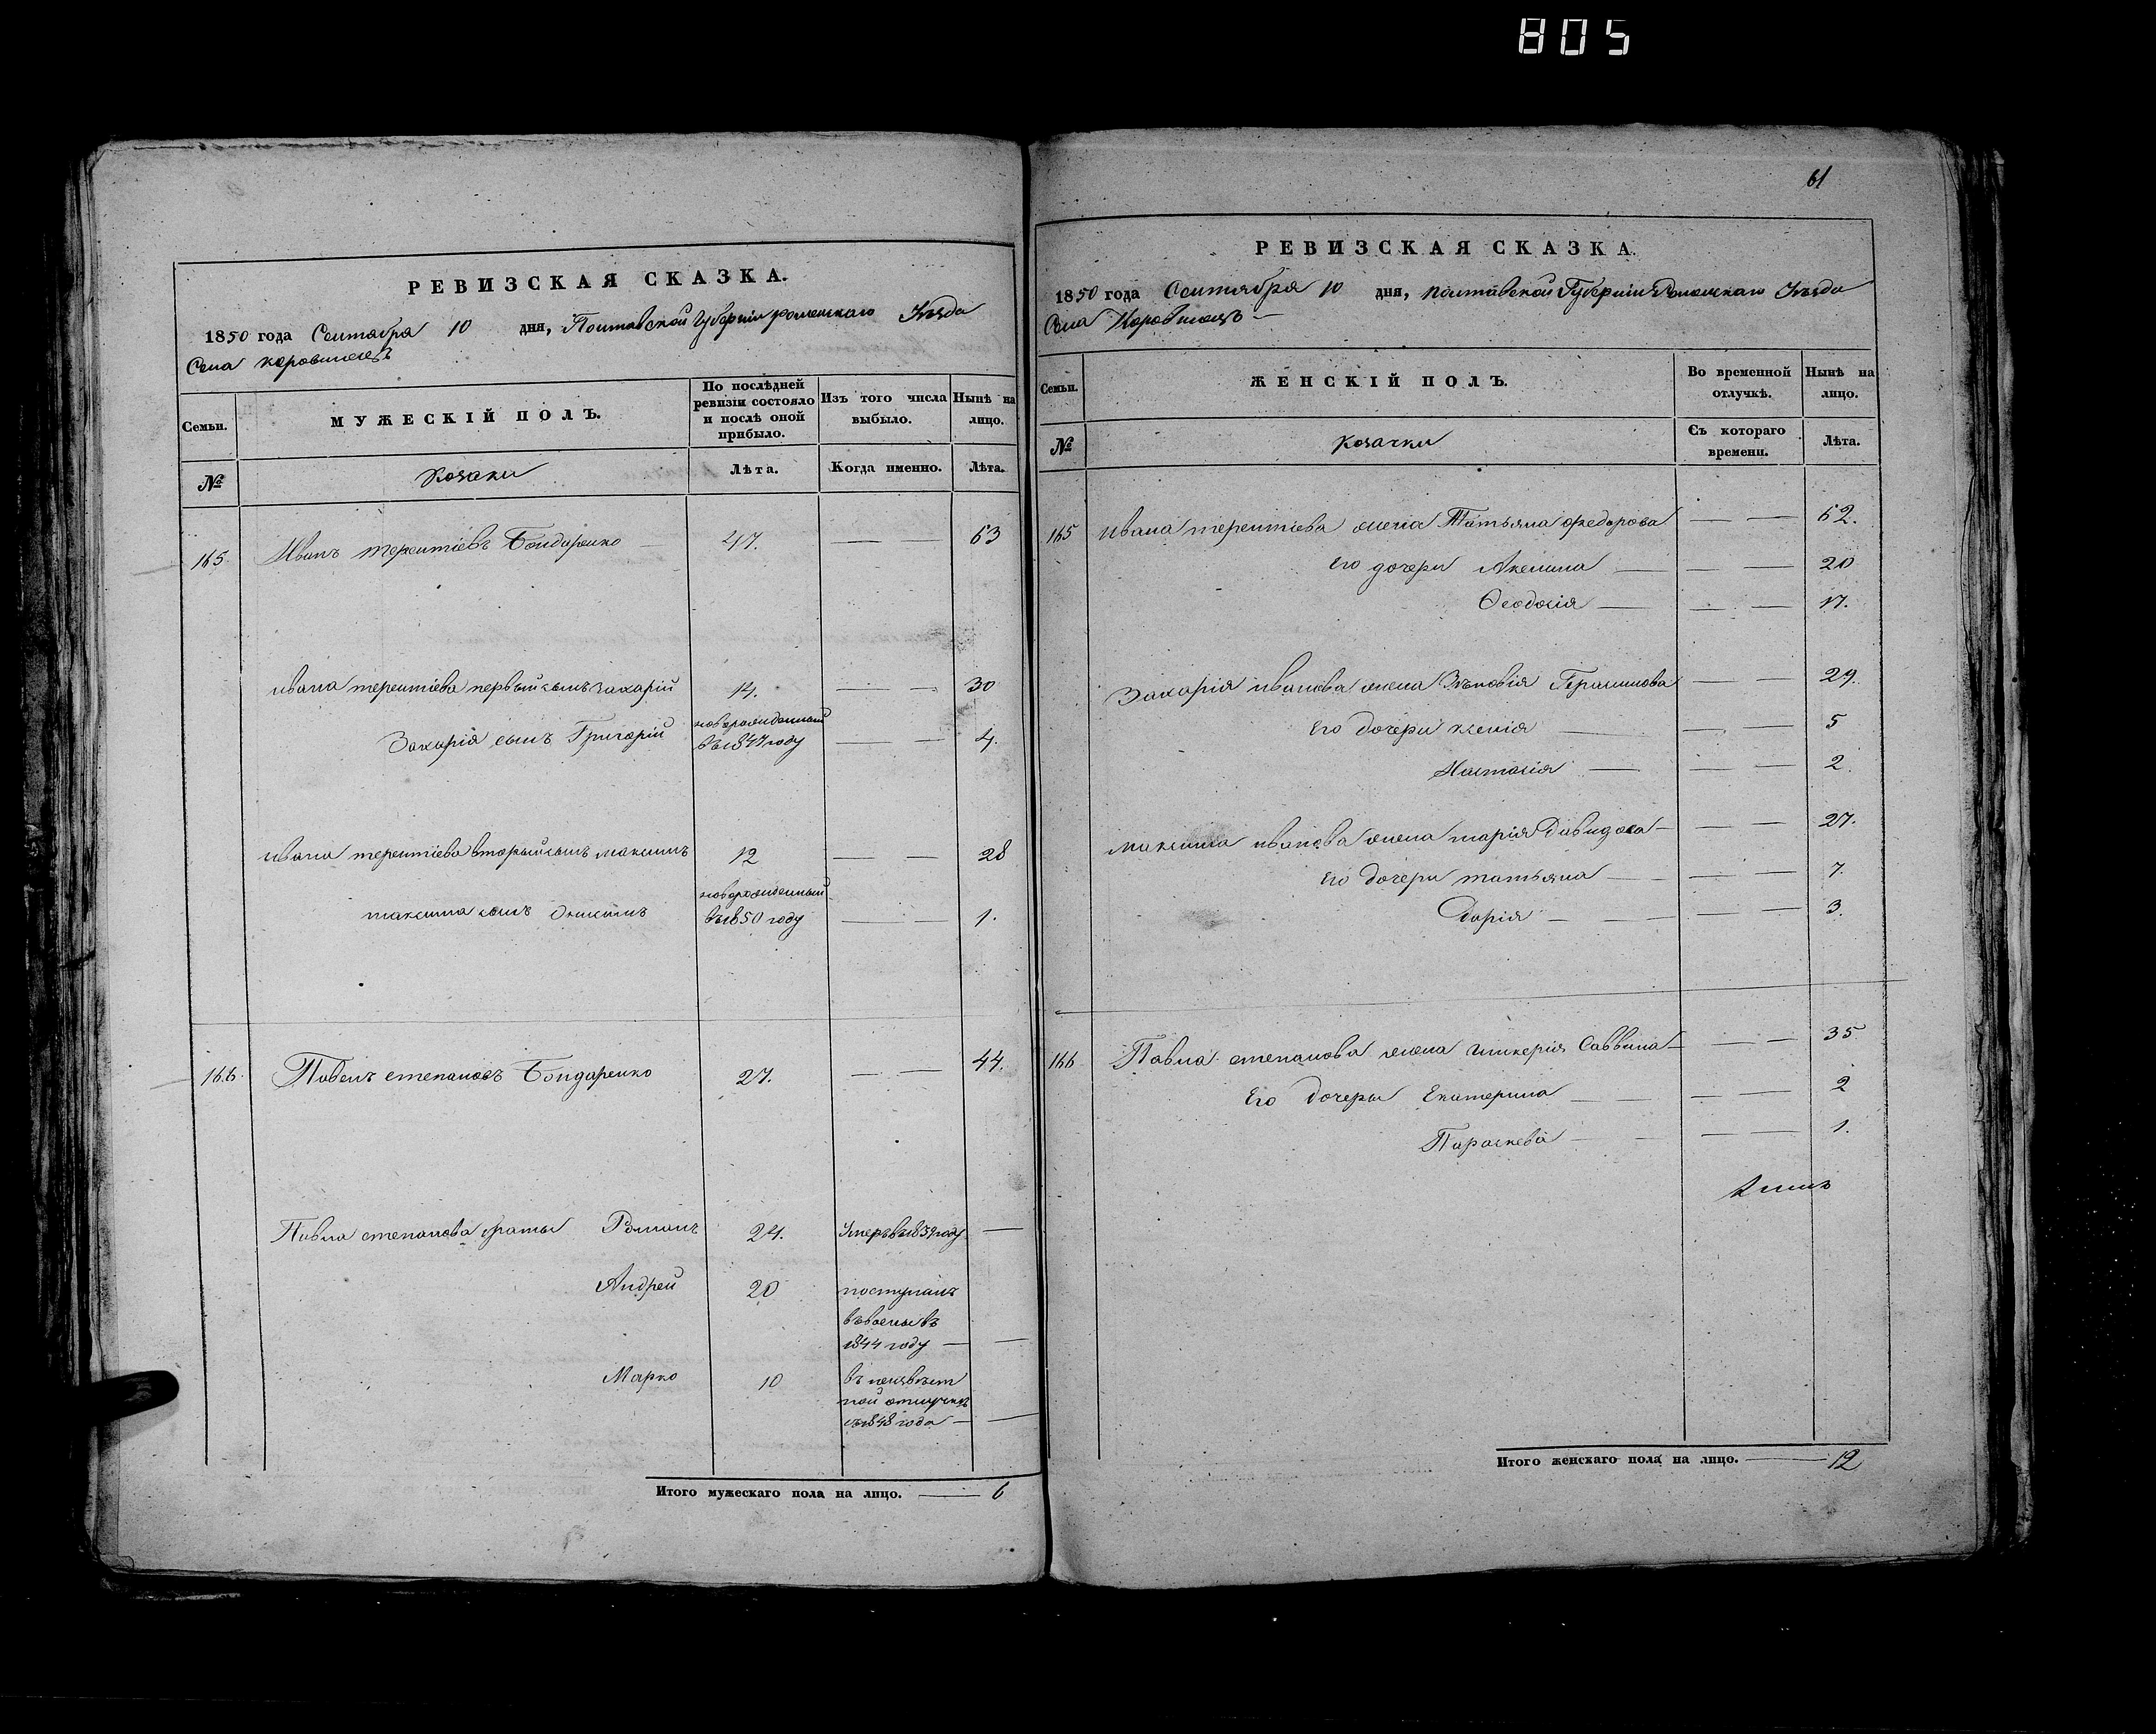 805
РЕВИЗСКАЯ СКАЗКА.
1850 года Сентября 10 дня, Полтавской Губерніи роменскаго Уѣзда
Села коровинецъ
Семьи. МУЖЕСКІЙ ПОЛЪ. По послѣдней ревизіи состояло и послѣ оной прибыло. Изъ того числа выбыло. Нынѣ на лицо.
№ Козаки Лѣта. Когда именно. Лѣта.
165. Иванъ терентіевъ Бондаренко 47. — — 63
ивана терентіева первый сынъ захарій 14. — — 30
Захарія сынъ Григорій новорожденный въ 1847 году — — 4.
ивана терентіева вторый сынъ максимъ 12 — — 28
максима сынъ Онисимъ новорожденный въ 1850 году — — 1.
166. Павелъ степановъ Бондаренко 27. — — 44.
Павла степанова братья Романъ 24. Умеръ въ 1839 году —
Андрей 20 поступилъ
въ военые въ
1844 году — —
Марко 10 въ неизвѣст
ной отлучкѣ
съ 1848 года — —
Итого мужескаго пола на лицо. — 6
61
РЕВИЗСКАЯ СКАЗКА.
1850 года Сентября 10 дня, Полтавской Губерніи Роменскаго Уѣзда
Села Коровинецъ —
Семьи. ЖЕНСКІЙ ПОЛЪ. Во временной отлучкѣ. Нынѣ на лицо.
№ Козачки Съ котораго времени. Лѣта.
165 ивана терентіева жена Татьяна федорова — — 62.
Его дочери Акелина — — 20
Феодосія — — 17.
Захарія иванова жена Зѣновія Герасимова — — 29.
Его дочери ксенія — — 5
Настасія — — 2.
максима иванова жена марія Давидова — — 27.
Его дочери татьяна — — 7.
Дарія — — 3.
166 Павла степанова жена гликерія Саввина — — 35
Его дочери Екатерина — — 2
Параскева — — 1.
Итого женскаго пола на лицо. — 12